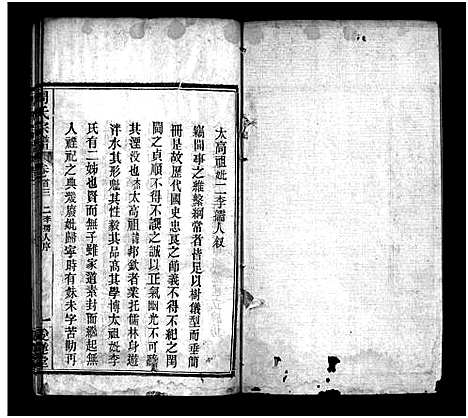 太高祖妣二李孺人叙
竊聞事之維繫綱常者皆足以樹儀型而垂簡
冊是故歷代國史忠良之節義不得不紀之閨
閫之貞順不得不載之誠以正氣幽光不可聽
其湮没也 太高祖諱邦欽者業托儒林身遊
泮水其形魁其性毅其品高其學博太祖妣李
氏有二姊也賢而無子雖家道素封而繼起無
人禋祀之典幾廢妣歸寧時有妹未字苦勸再
氏宗譜
卷首三 二李孺人序
一
堂